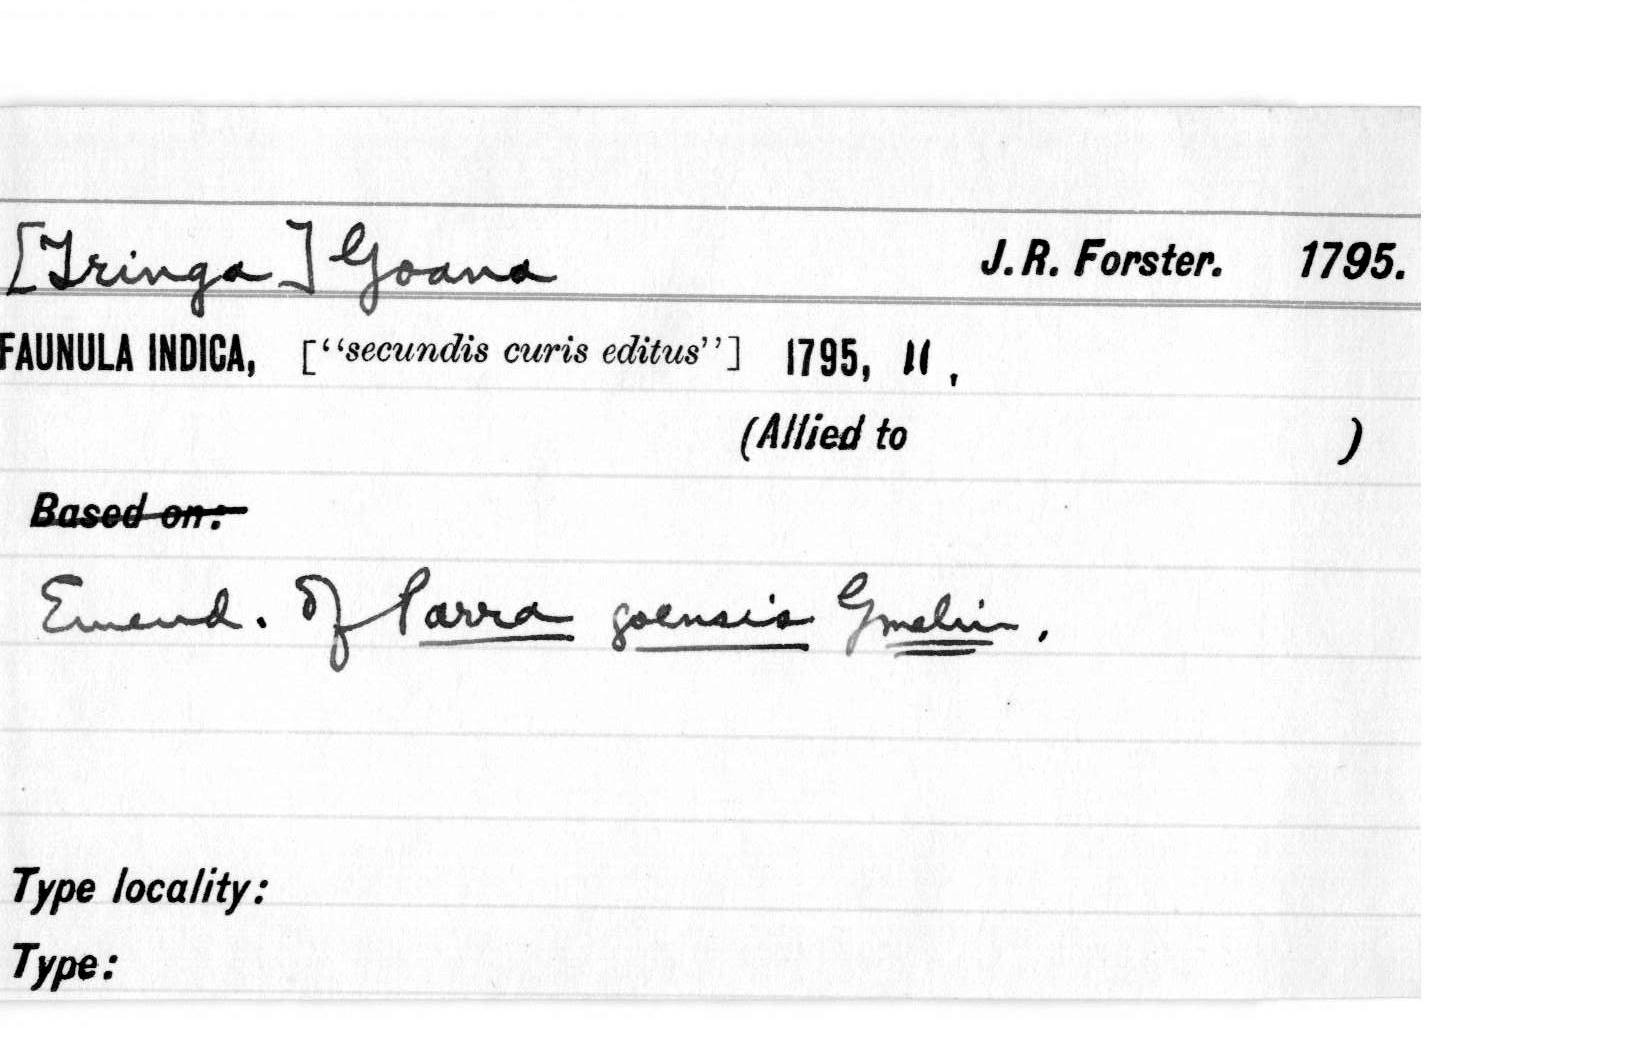 [Tringa] Goana J. R. Forster. 1795.
FAUNULA INDICA, ["secundis curis editus"] 1795, 11.
(Allied to )
Based on:
Emend. of Parra goensis Gmelin.
Type locality:
Type: